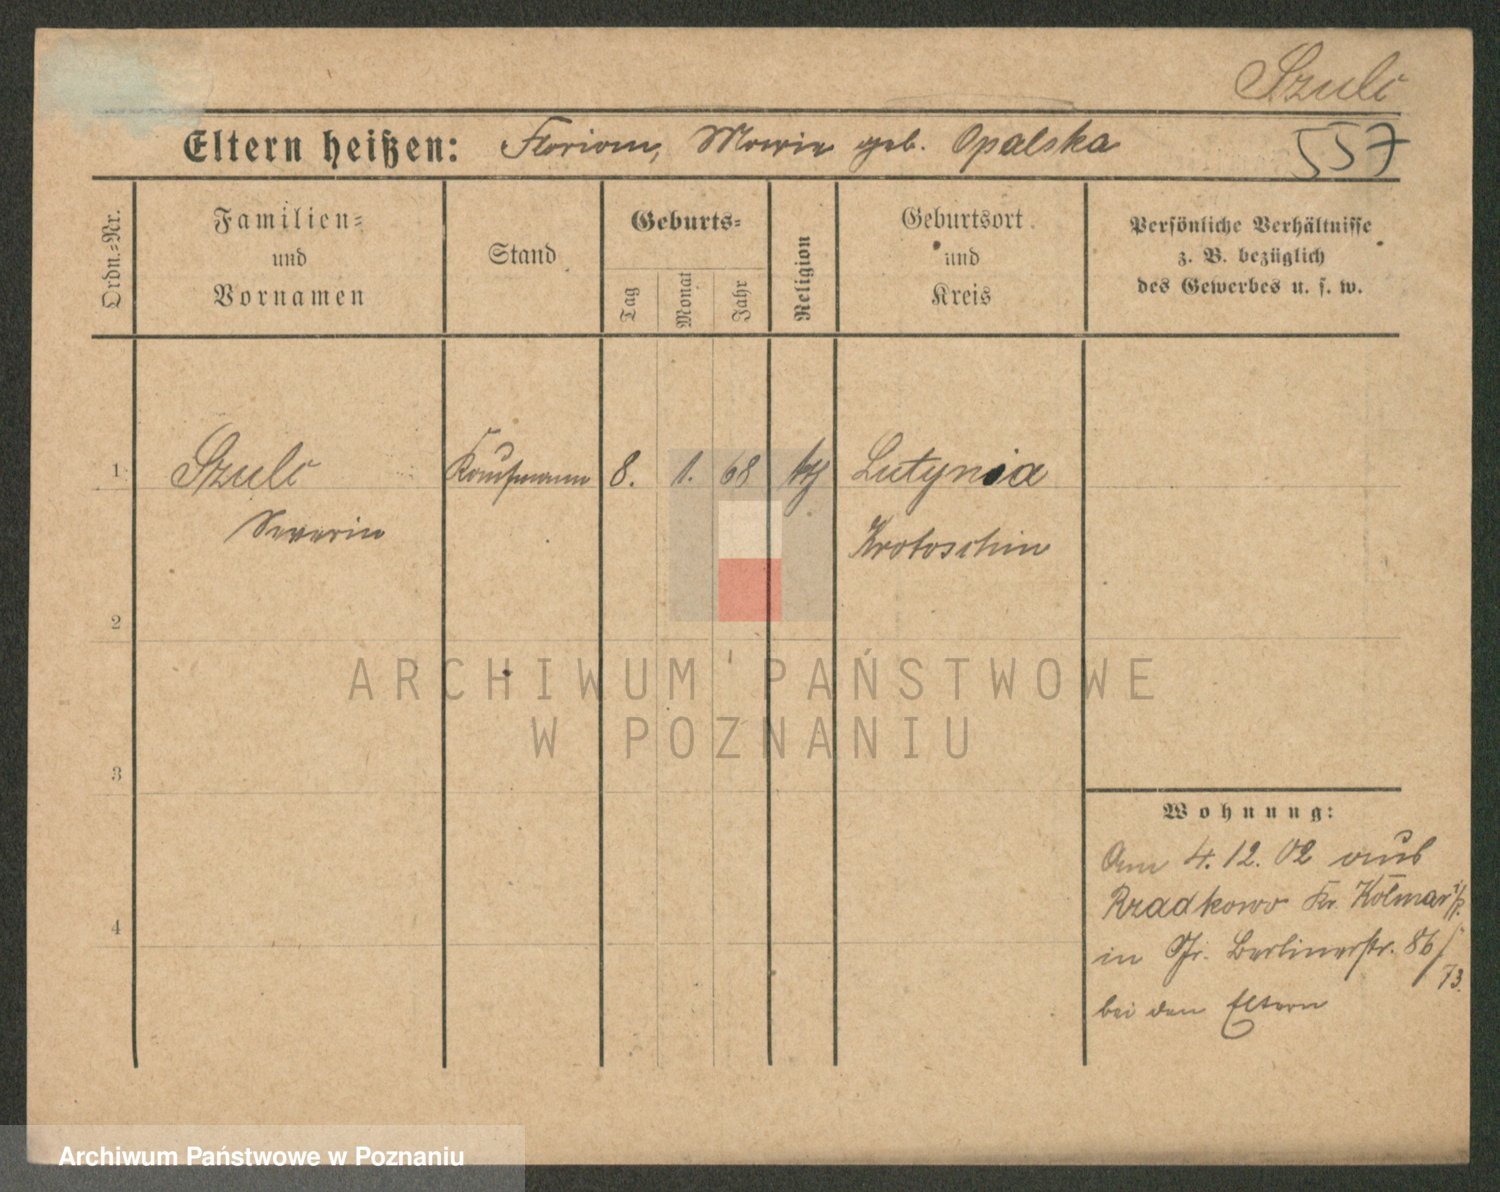 Szulc
Eltern heißen: Florian, Maria geb. Opalska
557
Ordn.=Nr.
Familien=
und
Vornamen
Stand
Geburts=
Tag
Monat
Jahr
Religion
Geburtsort
und
Kreis
Persönliche Verhältnisse
z. B. bezüglich
des Gewerbes u. s. w.
1 Szulc Kaufmann 8. 1. 68 kth Lutynia
Severin Krotoschin
2
ARCHIWUM PAŃSTWOWE
W POZNANIU
3
Wohnung:
Am 4.12.02 aus
Rzadkowo Kr. Kolmar i/P.
in Jr. Berlinerstr. 86/73.
4
bei den Eltern
Archiwum Państwowe w Poznaniu